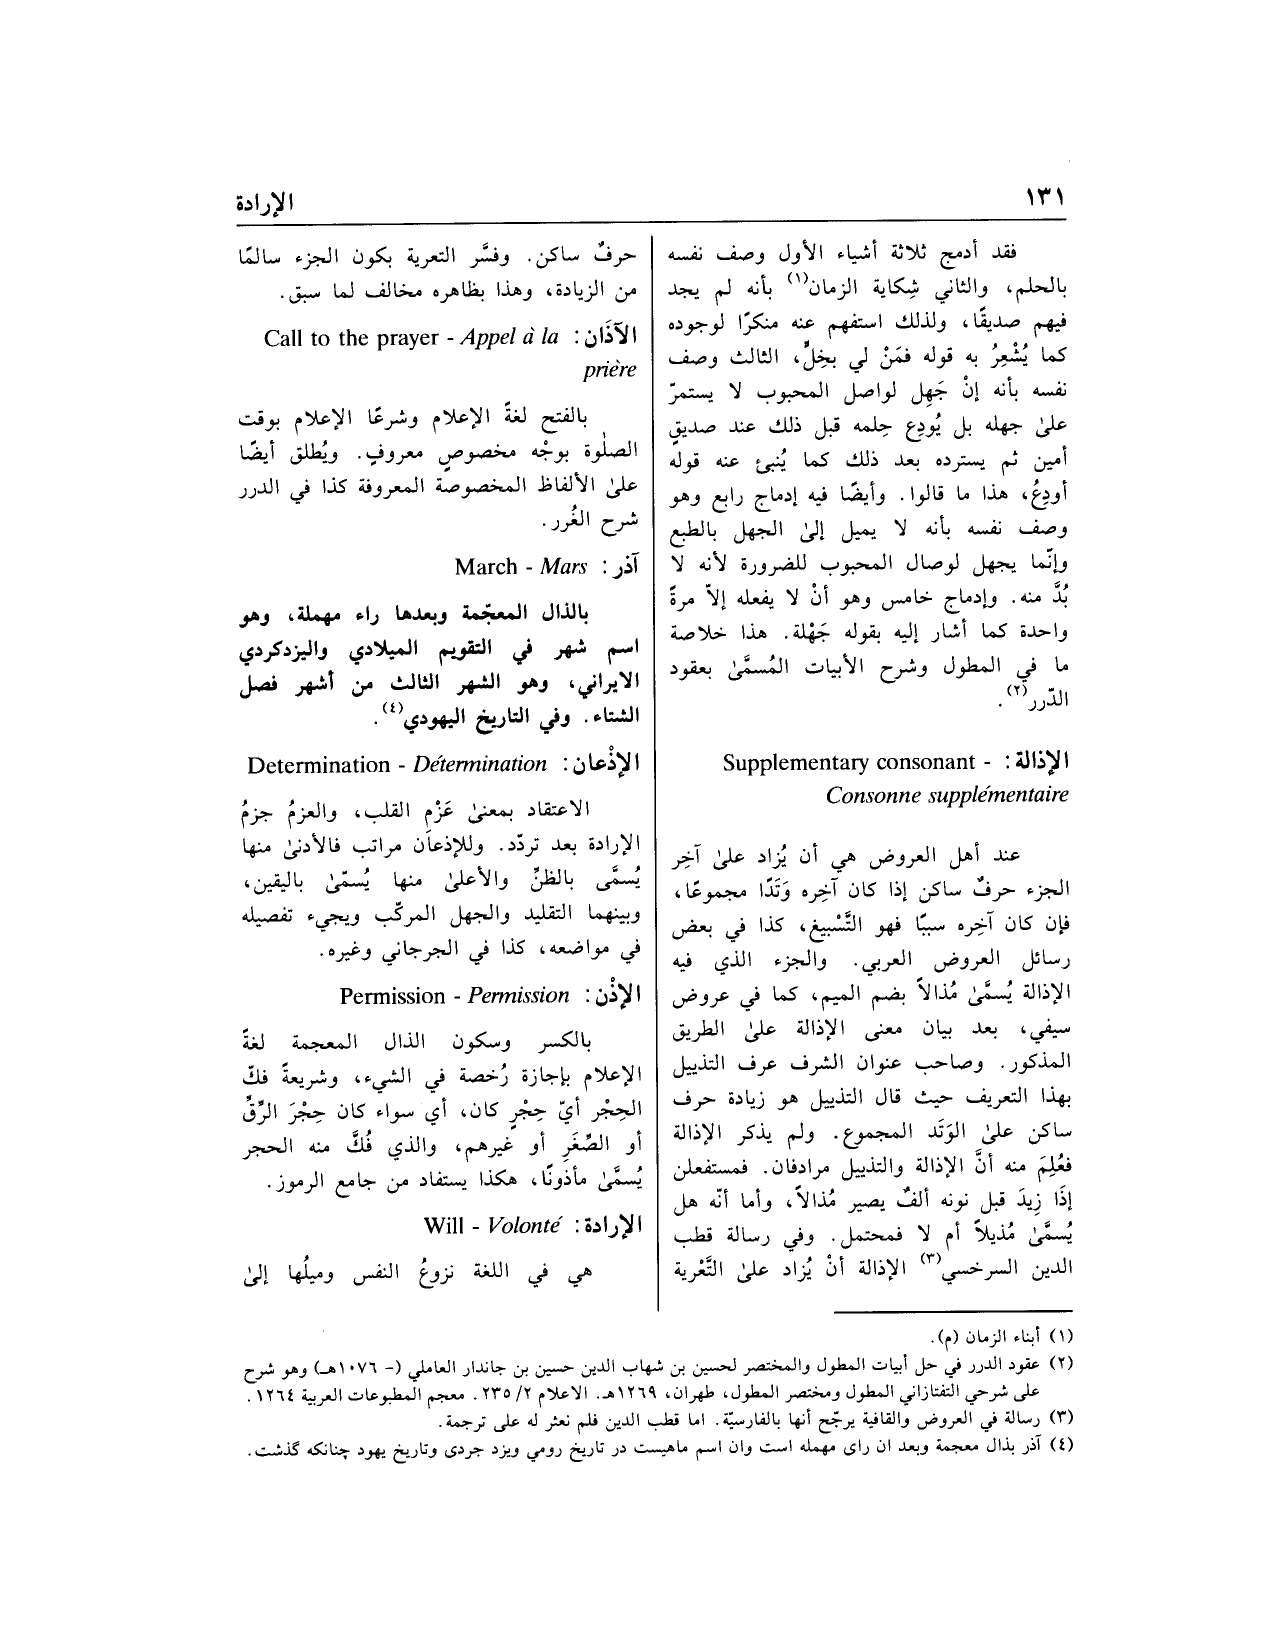 ١٣١
الإرادة
فقد أدمج ثلاثة أشياء الأول وصف نفسه
بالحلم، والثاني شِكاية الزمان(١) بأنه لم يجد
فيهم صديقًا، ولذلك استفهم عنه منكرًا لوجوده
كما يُشْعِرُ به قوله فمَنْ لي بخِلٍّ، الثالث وصف
نفسه بأنه إنْ جَهِل لواصل المحبوب لا يستمرّ
علىٰ جهله بل يُودِع حِلمه قبل ذلك عند صديقٍ
أمين ثم يسترده بعد ذلك كما يُنبئ عنه قوله
أودِعُ، هذا ما قالوا. وأيضًا فيه إدماج رابع وهو
وصف نفسه بأنه لا يميل إلىٰ الجهل بالطبع
وإنّما يجهل لوصال المحبوب للضرورة لأنه لا
بُدَّ منه. وإدماج خامس وهو أنْ لا يفعله إلاّ مرةً
واحدة كما أشار إليه بقوله جَهْلة. هذا خلاصة
ما في المطول وشرح الأبيات المُسمَّىٰ بعقود
الدّرر(٢).
الإذالة: Supplementary consonant -
Consonne supplémentaire
عند أهل العروض هي أن يُزاد علىٰ آخِر
الجزء حرفٌ ساكن إذا كان آخِره وَتَدًا مجموعًا،
فإن كان آخِره سببًا فهو التَّسْبيغ، كذا في بعض
رسائل العروض العربي. والجزء الذي فيه
الإذالة يُسمَّىٰ مُذالاً بضم الميم، كما في عروض
سيفي، بعد بيان معنى الإذالة علىٰ الطريق
المذكور. وصاحب عنوان الشرف عرف التذييل
بهذا التعريف حيث قال التذييل هو زيادة حرف
ساكن علىٰ الوَتَد المجموع. ولم يذكر الإذالة
فعُلِمَ منه أنَّ الإذالة والتذييل مرادفان. فمستفعلن
إذَا زِيدَ قبل نونه ألفٌ يصير مُذالاً، وأما أنّه هل
يُسمَّىٰ مُذيلاً أم لا فمحتمل. وفي رسالة قطب
الدين السرخسي(٣) الإذالة أنْ يُزاد علىٰ التَّعْرية
حرفٌ ساكن. وفسَّر التعرية بكون الجزء سالمًا
من الزيادة، وهذا بظاهره مخالف لما سبق.
الآذَان: Call to the prayer - Appel à la
prière
بالفتح لغةً الإعلام وشرعًا الإعلام بوقت
الصلٰوة بوجْه مخصوصٍ معروفٍ. ويُطلق أيضًا
علىٰ الألفاظ المخصوصة المعروفة كذا في الدرر
شرح الغُرر.
آذر: March - Mars
بالذال المعجّمة وبعدها راء مهملة، وهو
اسم شهر في التقويم الميلادي واليزدكردي
الايراني، وهو الشهر الثالث من أشهر فصل
الشتاء. وفي التاريخ اليهودي(٤).
الإذْعان: Determination - Détermination
الاعتقاد بمعنىٰ عَزْمِ القلب، والعزمُ جزمُ
الإرادة بعد تردّد. وللإذعان مراتب فالأدنىٰ منها
يُسمَّى بالظنِّ والأعلىٰ منها يُسمّىٰ باليقين،
وبينهما التقليد والجهل المركّب ويجيء تفصيله
في مواضعه، كذا في الجرجاني وغيره.
الإذْن: Permission - Permission
بالكسر وسكون الذال المعجمة لغةً
الإعلام بإجازة رُخصة في الشيء، وشريعةً فكّ
الحِجْر أيّ حِجْرٍ كان، أي سواء كان حِجْرَ الرِّقِّ
أو الصِّغَرِ أو غيرهم، والذي فُكَّ منه الحجر
يُسمَّىٰ مأذونًا، هكذا يستفاد من جامع الرموز.
الإرادة: Will - Volonté
هي في اللغة نزوعُ النفس وميلُها إلىٰ
(١) أبناء الزمان (م).
(٢) عقود الدرر في حل أبيات المطول والمختصر لحسين بن شهاب الدين حسين بن جاندار العاملي (- ١٠٧٦هـ) وهو شرح
على شرحي التفتازاني المطول ومختصر المطول، طهران، ١٢٦٩هـ. الاعلام ٢/ ٢٣٥. معجم المطبوعات العربية ١٢٦٤.
(٣) رسالة في العروض والقافية يرجّح أنها بالفارسيّة. اما قطب الدين فلم نعثر له على ترجمة.
(٤) آذر بذال معجمة وبعد ان راى مهمله است وان اسم ماهيست در تاريخ رومي ويزد جردى وتاريخ يهود چنانكه گذشت.